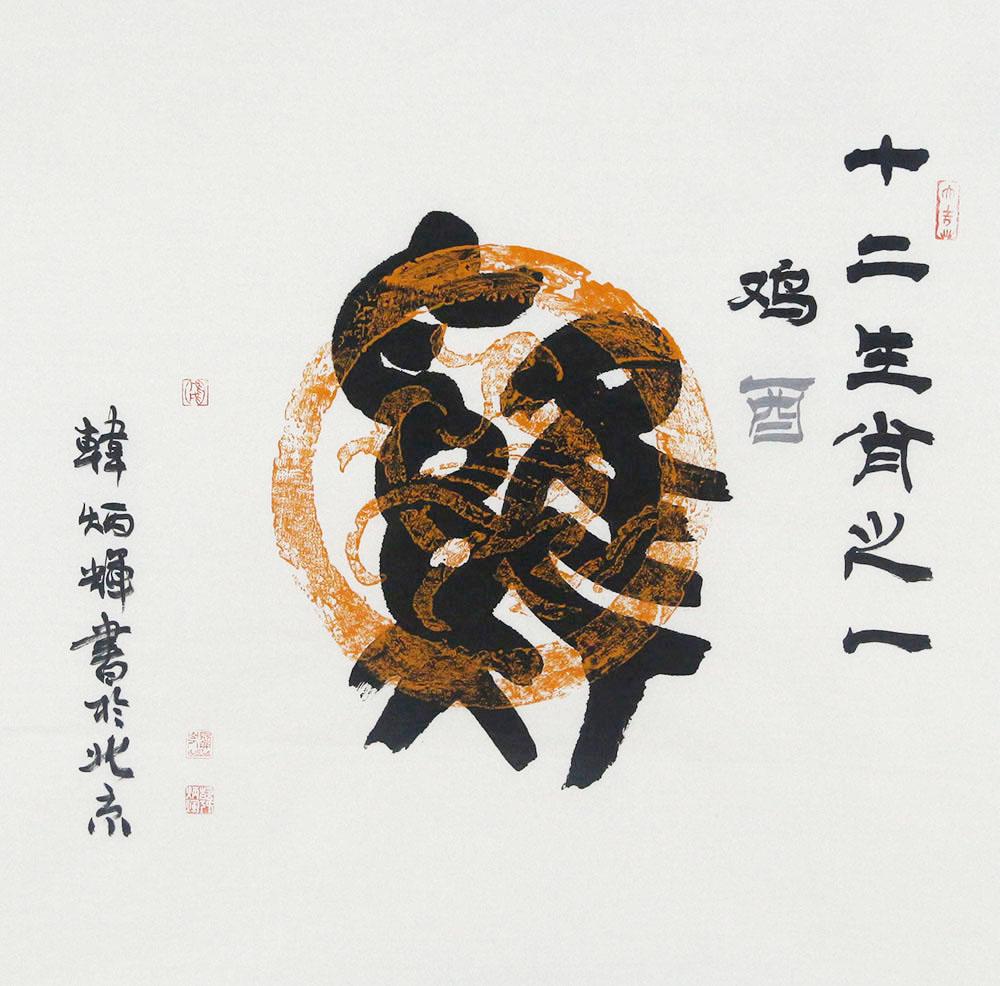 十二生肖之一
鸡
酉
韓炳輝書於北京